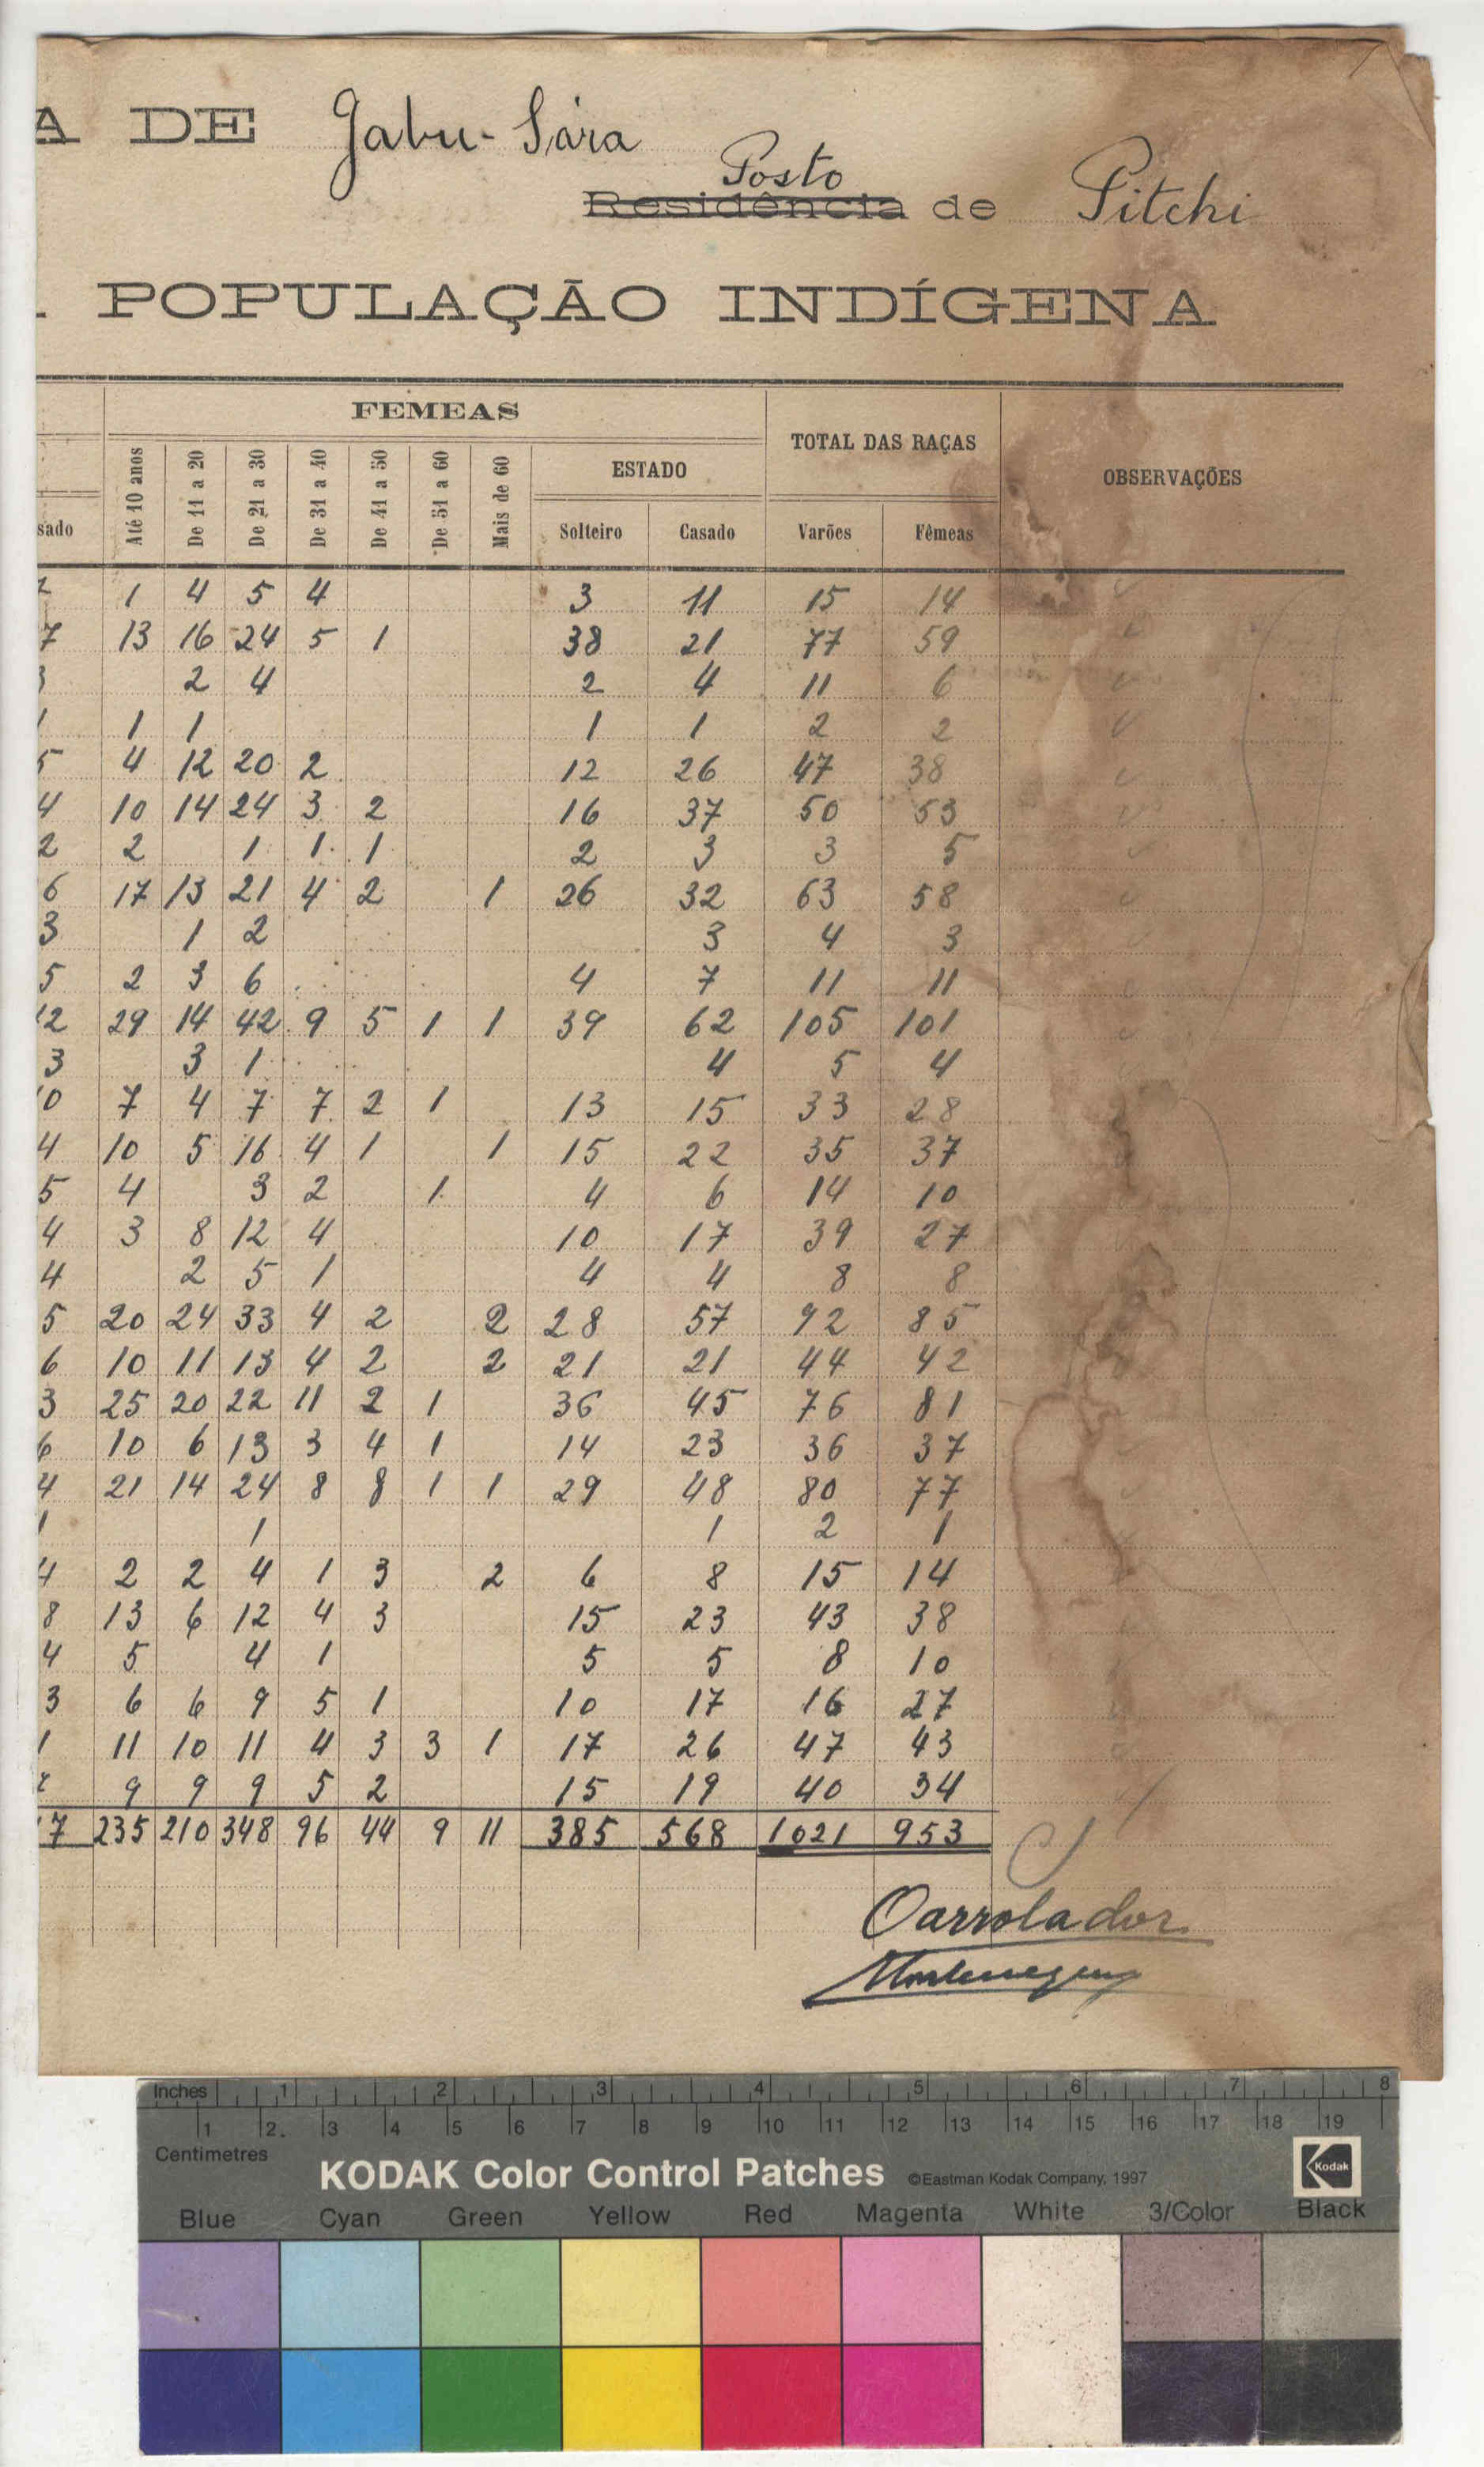 A DE Gabu-Sára
Posto
Residência de Pitchi
POPULAÇÃO INDÍGENA
FEMEAS
TOTAL DAS RAÇAS
OBSERVAÇÕES
ESTADO
sado Até 10 anos De 11 a 20 De 21 a 30 De 31 a 40 De 41 a 50 De 51 a 60 Mais de 60 Solteiro Casado Varões Fêmeas
1 4 5 4 3 11 15 14
7 13 16 24 5 1 38 21 77 59
3 2 4 2 4 11 6
1 1 1 1 1 2 2
5 4 12 20 2 12 26 47 38
4 10 14 24 3 2 16 37 50 53
2 2 1 1 1 2 3 3 5
6 17 13 21 4 2 1 26 32 63 58
3 1 2 3 4 3
5 2 3 6 4 7 11 11
12 29 14 42 9 5 1 1 39 62 105 101
3 3 1 4 5 4
0 7 4 7 7 2 1 13 15 33 28
4 10 5 16 4 1 1 15 22 35 37
5 4 3 2 1 4 6 14 10
4 3 8 12 4 10 17 39 27
4 2 5 1 4 4 8 8
5 20 24 33 4 2 2 28 57 92 85
6 10 11 13 4 2 2 21 21 44 42
3 25 20 22 11 2 1 36 45 76 81
6 10 6 13 3 4 1 14 23 36 37
4 21 14 24 8 8 1 1 29 48 80 77
1 1 1 2 1
4 2 2 4 1 3 2 6 8 15 14
8 13 6 12 4 3 15 23 43 38
4 5 4 1 5 5 8 10
3 6 6 9 5 1 10 17 16 27
1 11 10 11 4 3 3 1 17 26 47 43
9 9 9 5 2 15 19 40 34
17 235 210 348 96 44 9 11 385 568 1021 953
O arrolador
Inches 1 2 3 4 5 6 7 8
1 2 3 4 5 6 7 8 9 10 11 12 13 14 15 16 17 18 19
Centimetres
KODAK Color Control Patches ©Eastman Kodak Company, 1997 Kodak
Blue Cyan Green Yellow Red Magenta White 3/Color Black